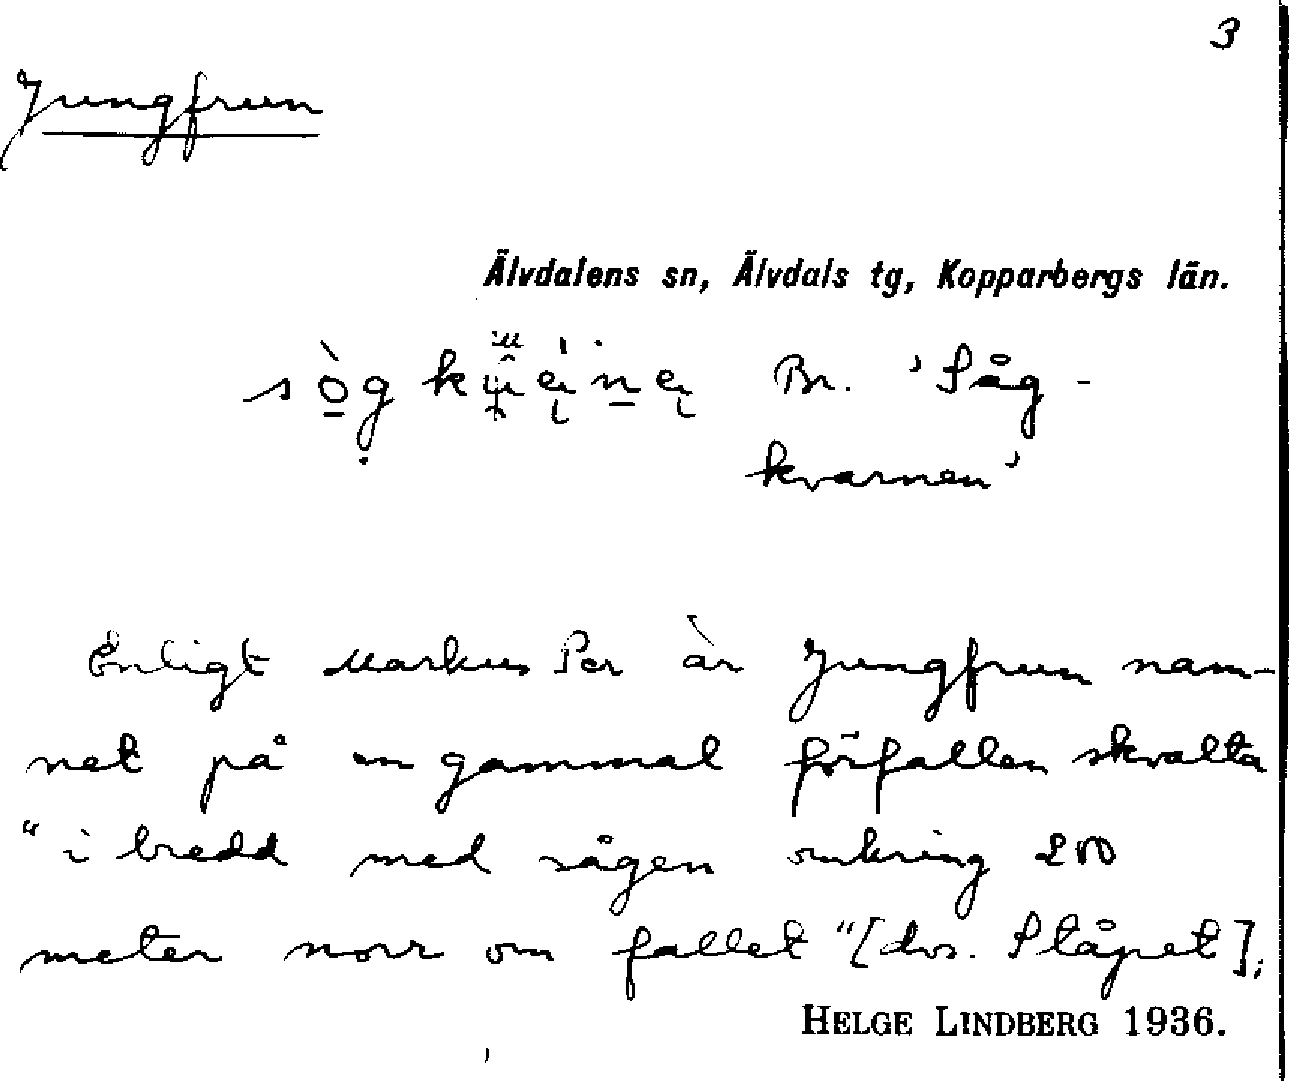 3
Jungfrun
Älvdalens sn, Älvdals tg, Kopparbergs län.
Br. 'Såg-
kvarnen'
Enligt Markus Per är Jungfrun nam-
net på en gammal förfallen skvalta
"i bredd med sågen omkring 200
meter norr om fallet" [dvs. Ståpet];
HELGE LINDBERG 1936.